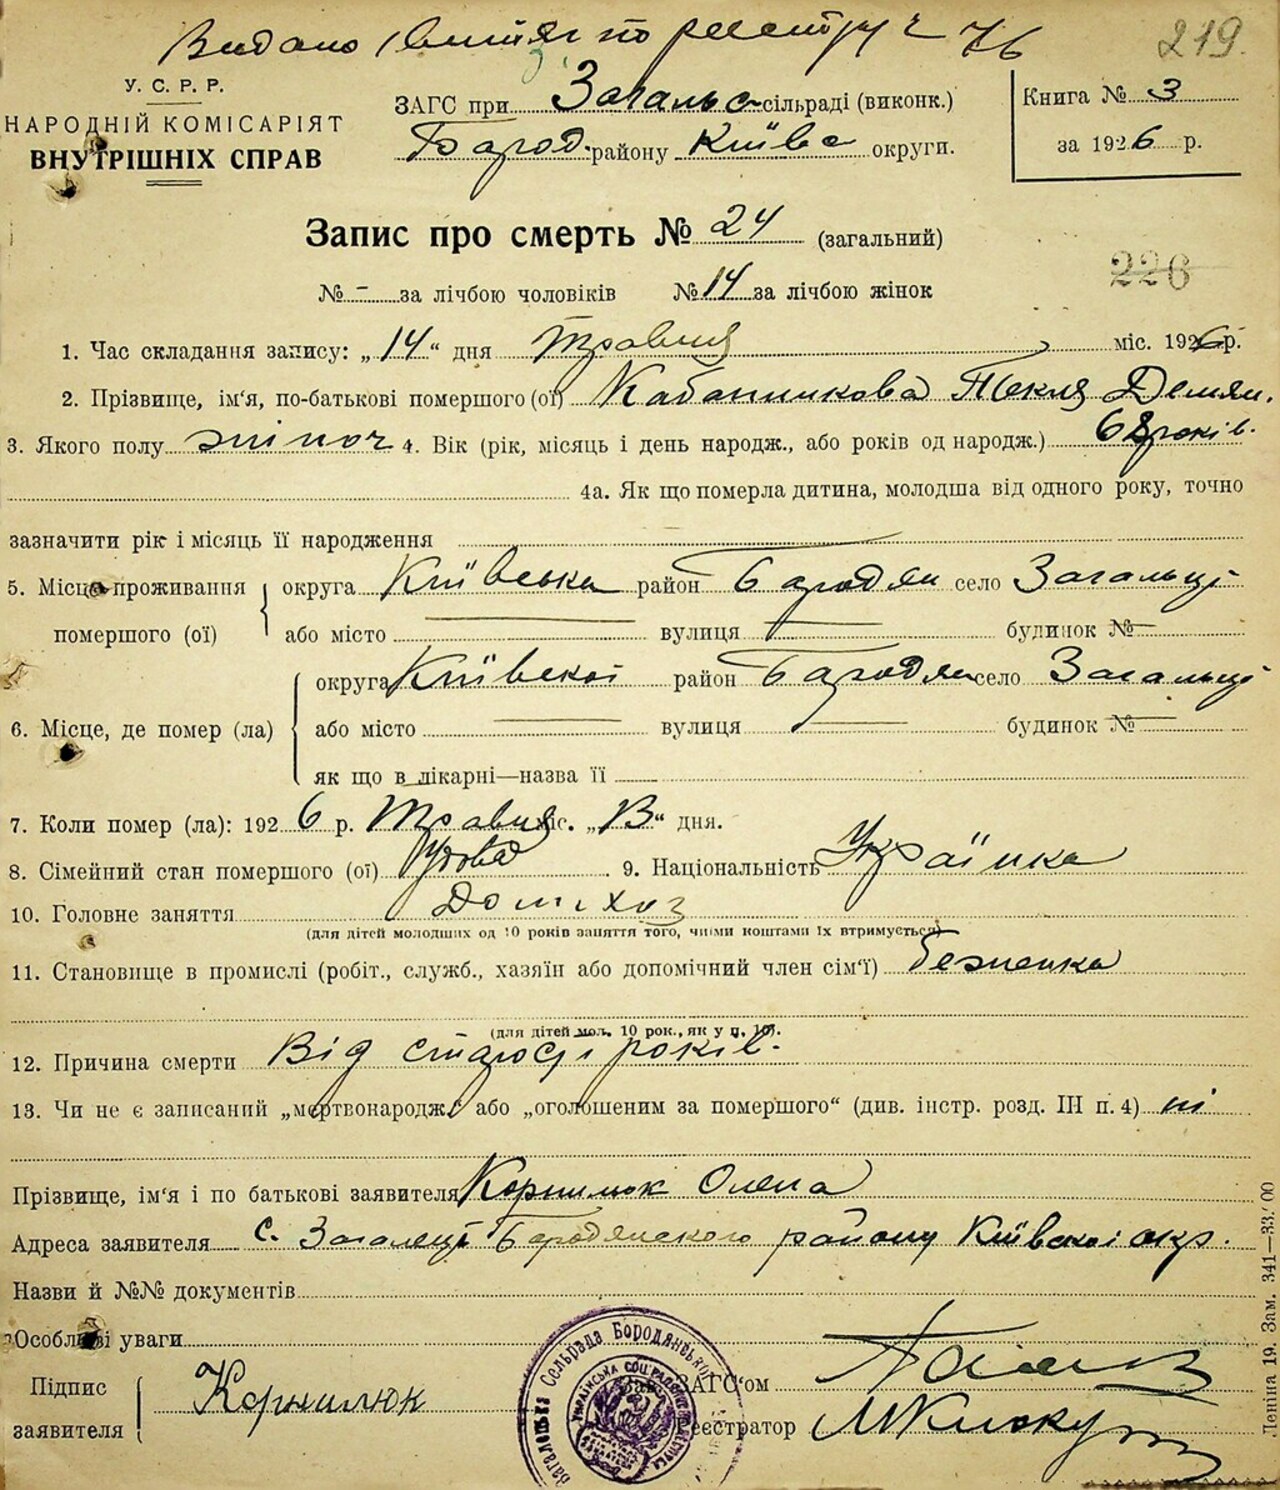 Видано по реєстру ч 76
219.
У. С. Р. Р.
НАРОДНІЙ КОМІСАРІЯТ
ВНУТРІШНІХ СПРАВ
ЗАГС при Загальс сільраді (виконк.)
Бород. району Київс округи.
Книга № 3
за 1926 р.
Запис про смерть № 24 (загальний)
226
№ - за лічбою чоловіків № 14 за лічбою жінок
1. Час складання запису: „14“ дня Травня міс. 1926 р.
2. Прізвище, ім‘я, по-батькові помершого (ої) Кабанникова Текля Демян.
3. Якого полу жіноч 4. Вік (рік, місяць і день народж., або років од народж.) 68 років.
4а. Як що померла дитина, молодша від одного року, точно
зазначити рік і місяць її народження
5. Місце проживання помершого (ої) округа Київська район Бородян село Загальці
або місто — вулиця — будинок № —
6. Місце, де помер (ла) округа Київскої район Бородян село Загальці
або місто — вулиця — будинок № —
як що в лікарні—назва її
7. Коли помер (ла): 1926 р. Травня міс. „13“ дня.
8. Сімейний стан помершого (ої) Удова 9. Національність Українка
10. Головне заняття Домхоз
(для дітей молодших од 10 років заняття того, чиїми коштами їх втримується)
11. Становище в промислі (робіт., служб., хазяїн або допомічний член сім‘ї)
(для дітей мол. 10 рок., як у п. 10).
12. Причина смерти Від старості років.
13. Чи не є записаний „мертвонародж.“ або „оголошеним за помершого“ (див. інстр. розд. III п. 4) ні
Прізвище, ім‘я і по батькові заявителя Корнилюк Олена
Адреса заявителя с. Загальці Бородянского району Київскої окр.
Назви й №№ документів
Особливі уваги
Підпис заявителя Корнилюк
Зав. ЗАГС‘ом
Реєстратор
Загальська Сельрада Бородянського
Українська Соц. Радянська Республіка
Леніна 19. Зам. 341—33.00